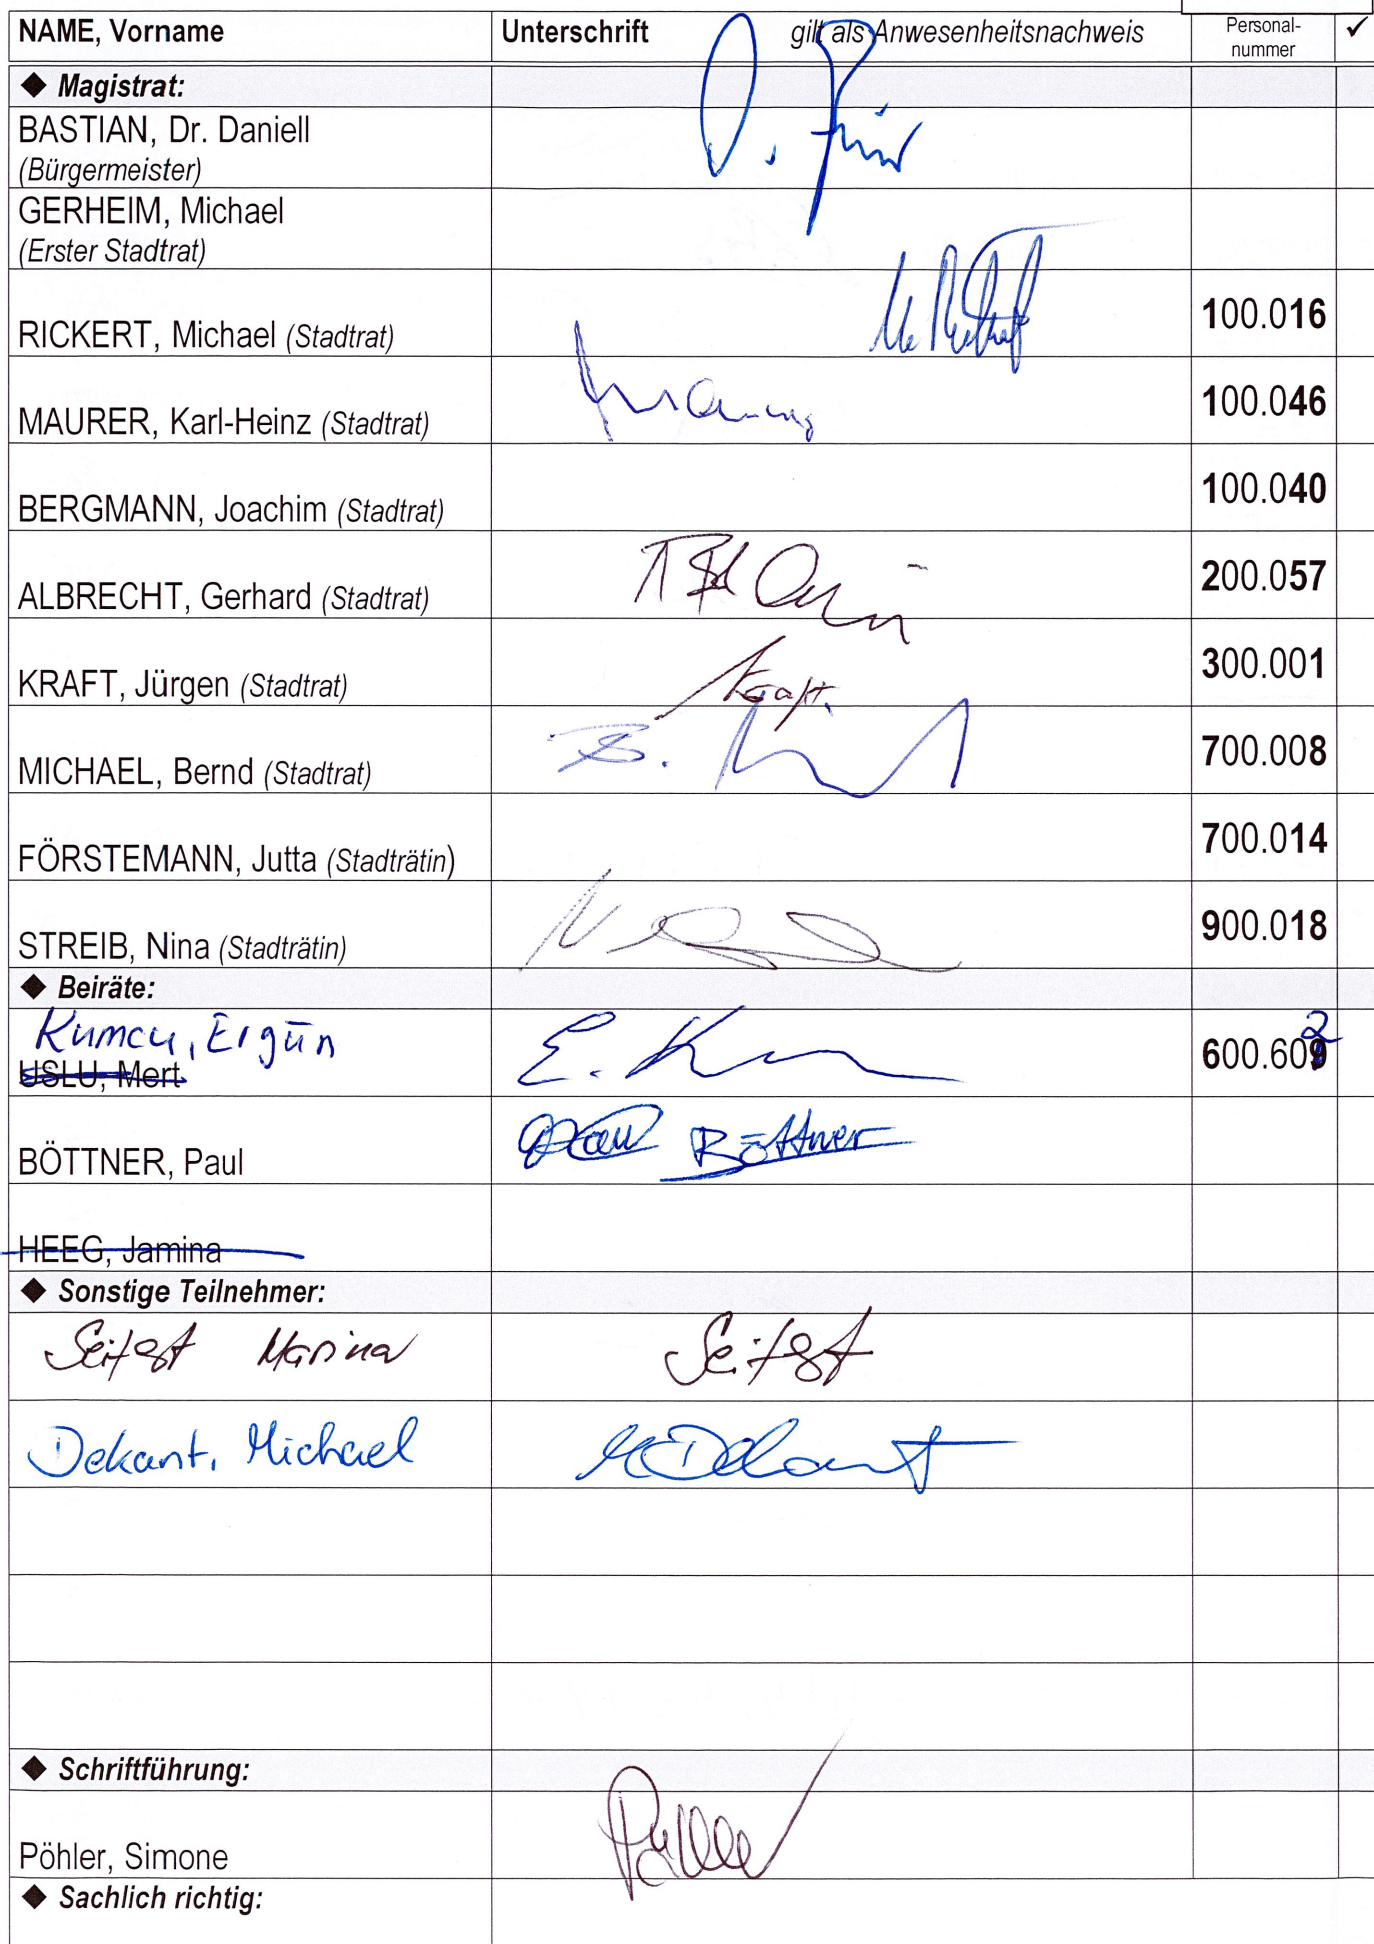 NAME, Vorname Unterschrift gilt als Anwesenheitsnachweis Personal-nummer ✓
◆ Magistrat:
BASTIAN, Dr. Daniell
(Bürgermeister)
GERHEIM, Michael
(Erster Stadtrat)
RICKERT, Michael (Stadtrat) 100.016
MAURER, Karl-Heinz (Stadtrat) 100.046
BERGMANN, Joachim (Stadtrat) 100.040
ALBRECHT, Gerhard (Stadtrat) 200.057
KRAFT, Jürgen (Stadtrat) Kraft. 300.001
MICHAEL, Bernd (Stadtrat) B. 700.008
FÖRSTEMANN, Jutta (Stadträtin) 700.014
STREIB, Nina (Stadträtin) 900.018
◆ Beiräte:
Kumcu, Ergün
USLU, Mert E. K 600.602
BÖTTNER, Paul Paul Böttner
HEEG, Jamina
◆ Sonstige Teilnehmer:
Seifert Marina Seifert
Dekant, Michael M Dekant
◆ Schriftführung:
Pöhler, Simone Pöhler
◆ Sachlich richtig: